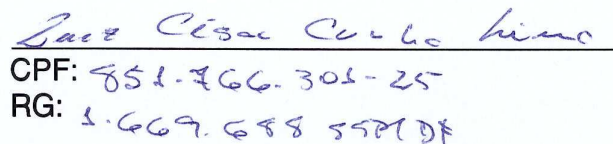 Luiz César Cunha Lima
CPF: 851.766.301-25
RG: 1.669.688 SSP/DF